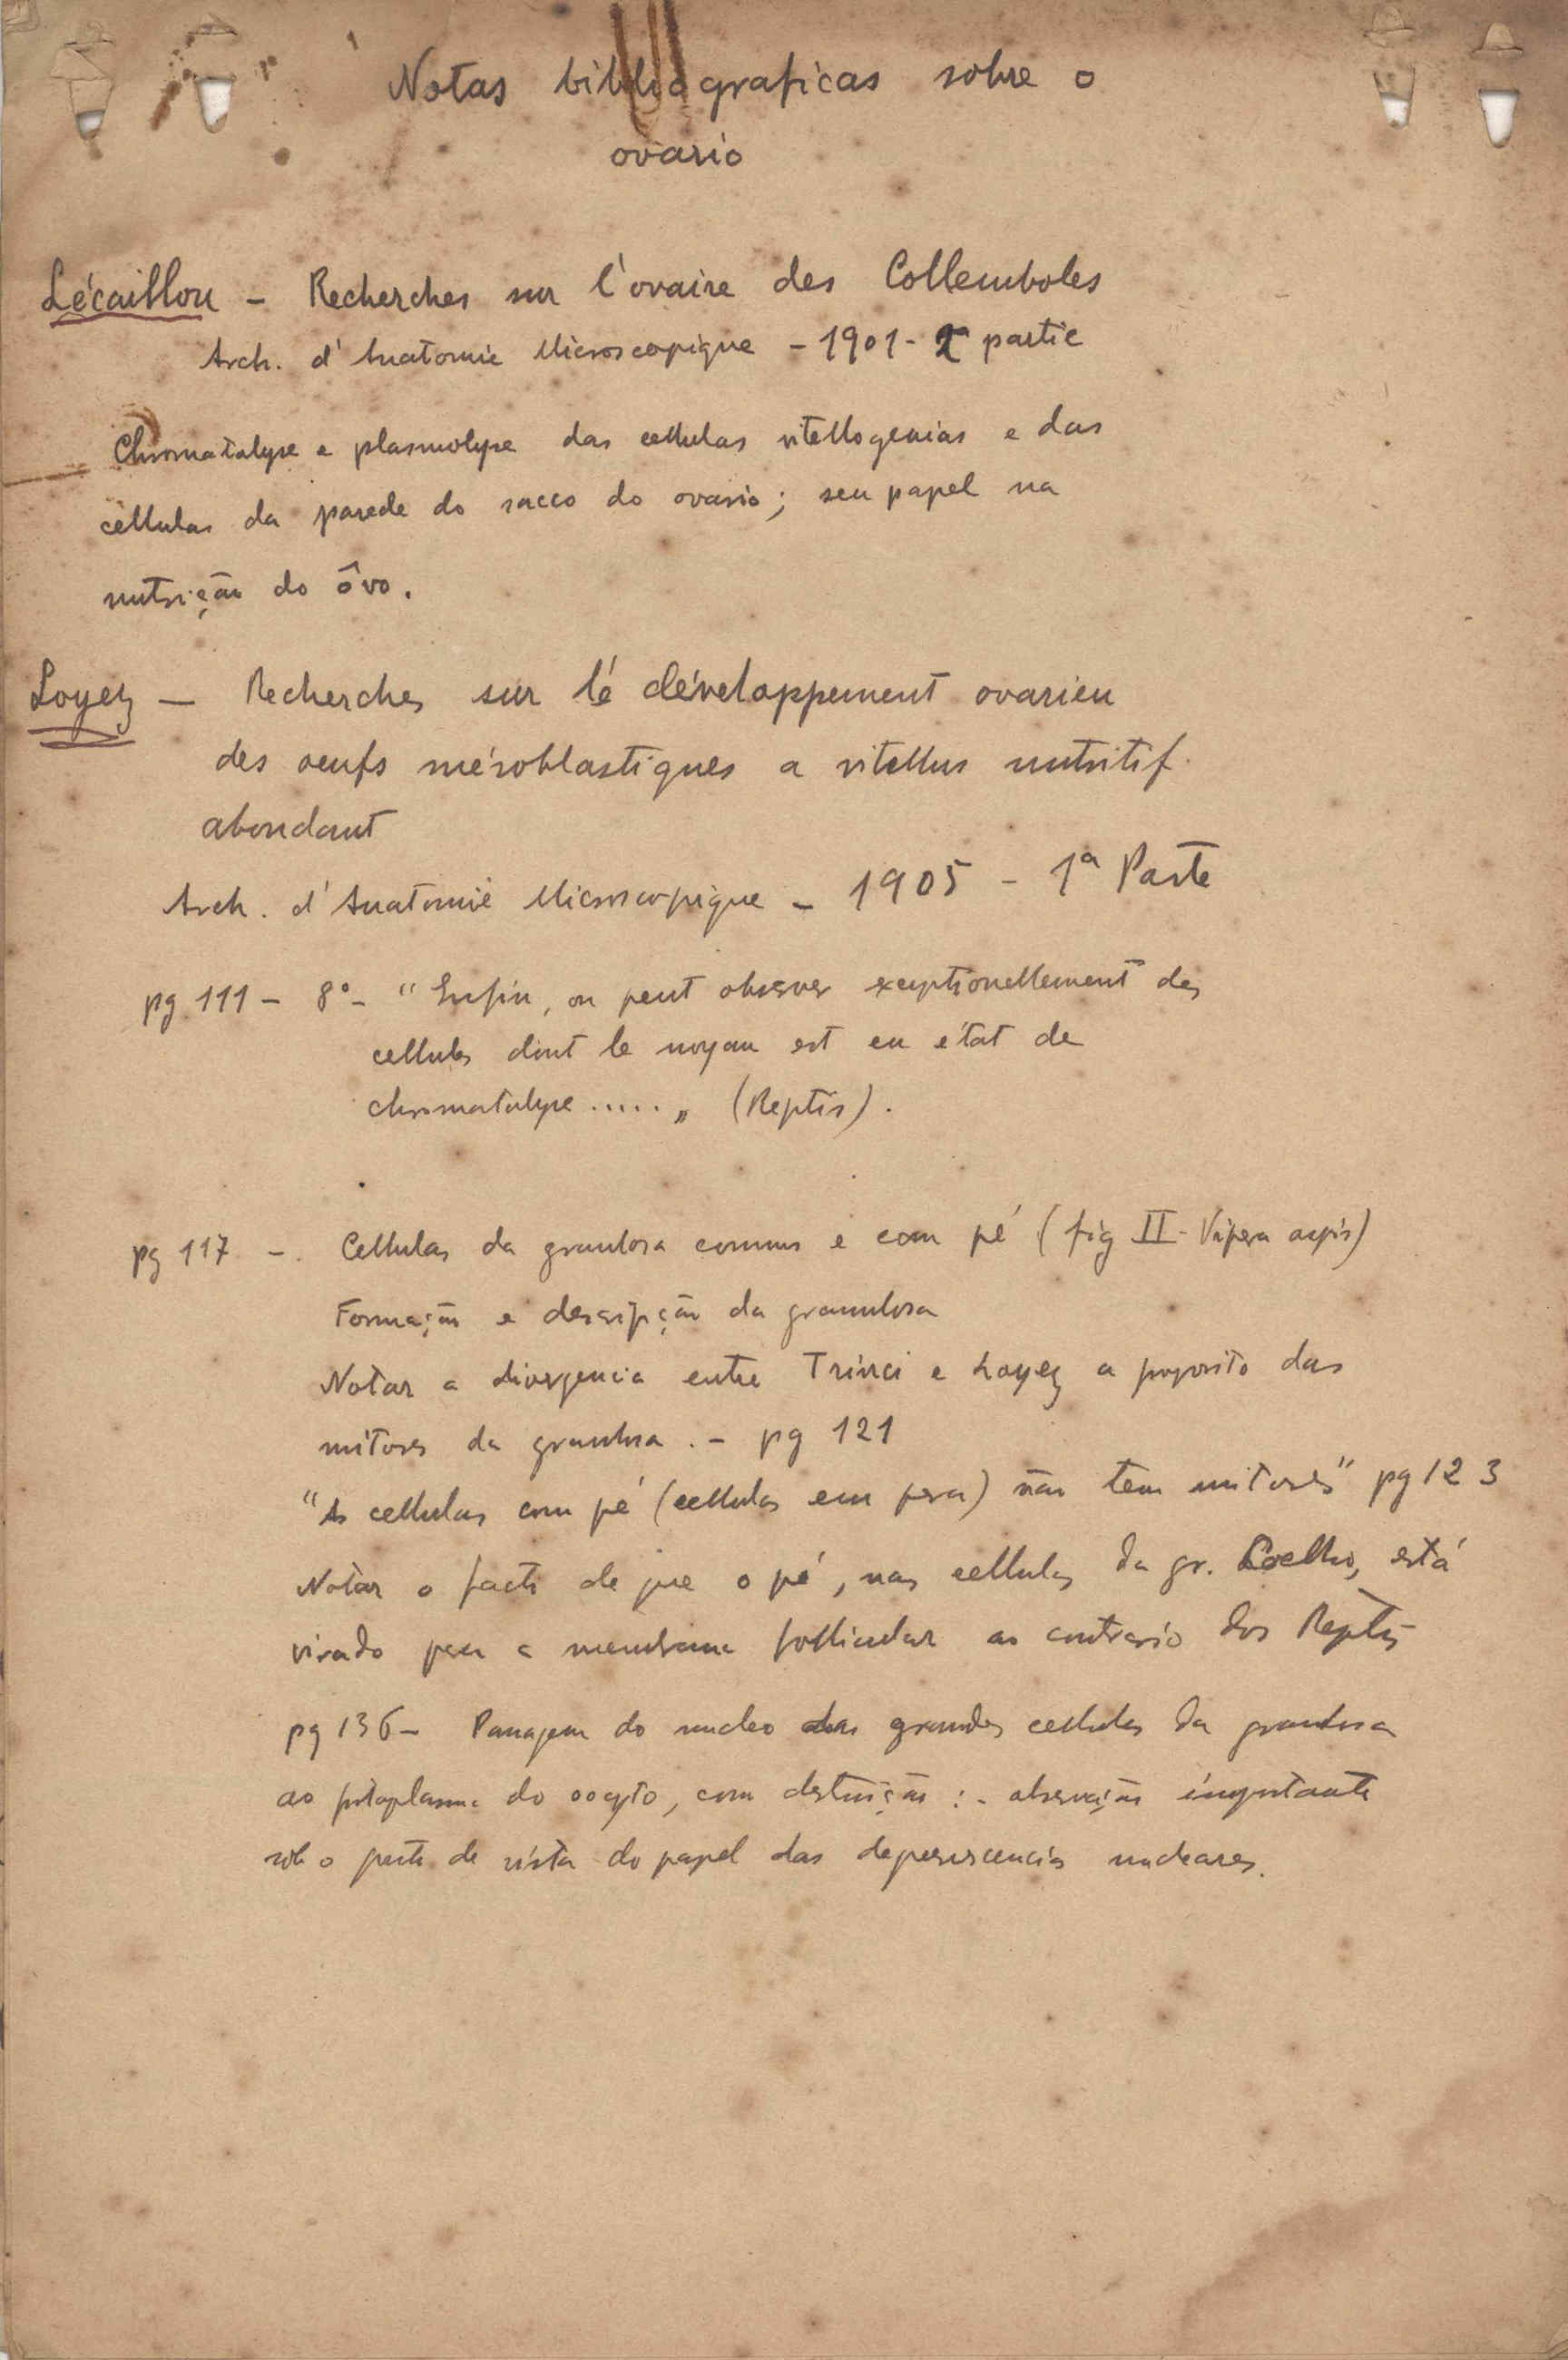 Notas bibliograficas sobre o
ovario
Lécaillon - Recherches sur l'ovaire des Collemboles
Arch. d'Anatomie Microscopique - 1901 - partie
Chromatolyse e plasmolyse das cellulas vitellogenias e das
cellulas da parede do sacco do ovario; seu papel na
nutrição do ôvo.
Loyez - Recherches sur lé développement ovarien
des oeufs méroblastiques a vitellus nutritif
abondant
Arch. d'Anatomie Microscopique - 1905 - 1ª Parte
pg 111 - 8º - "Enfin, on peut observer exceptionellement des
cellules dont le noyau est en état de
chromatolyse ..... " (Reptis).
pg 117 - Cellulas da granulosa comuns e com pé (fig II - Vipera aspis)
Formação e descripção da granulosa
Notar a divergencia entre Trinci e Loyez a proposito das
mitoses da granulosa . - pg 121
"As cellulas com pé (cellulas em pera) não tem mitoses" pg 123
Notar o facto de que o pé, nas cellulas da gr. Coelho, está
virado para a membrana follicular ao contrario dos Reptis
pg 136 - Passagem do nucleo das grandes cellulas da granulosa
ao protoplasma do oocyto, com destruição : - observação importante
sob o ponto de vista do papel das degenerescencias nucleares.